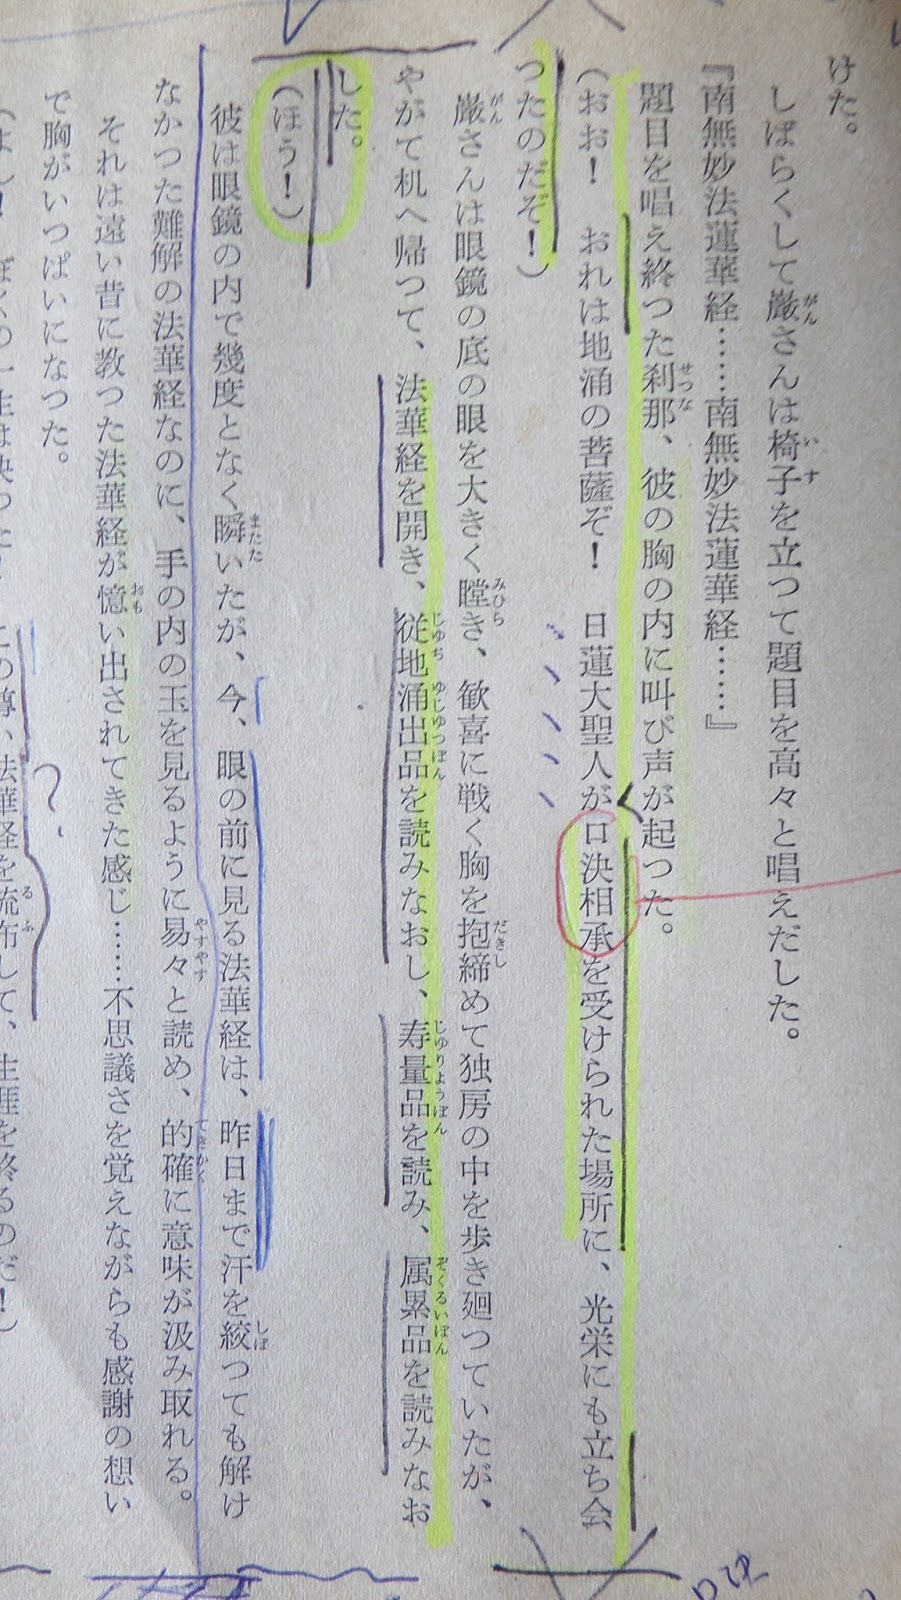 けた。
しばらくして厳さんは椅子を立つて題目を高々と唱えだした。
『南無妙法蓮華経……南無妙法蓮華経……』
題目を唱え終つた刹那、彼の胸の内に叫び声が起つた。
(おお! おれは地涌の菩薩ぞ! 日蓮大聖人が口決相承を受けられた場所に、光栄にも立ち会
つたのだぞ!)
厳さんは眼鏡の底の眼を大きく瞠き、歓喜に戦く胸を抱締めて独房の中を歩き廻つていたが、
やがて机へ帰つて、法華経を開き、従地涌出品を読みなおし、寿量品を読み、属累品を読みなお
した。
(ほう!)
彼は眼鏡の内で幾度となく瞬いたが、今、眼の前に見る法華経は、昨日まで汗を絞つても解け
なかつた難解の法華経なのに、手の内の玉を見るように易々と読め、的確に意味が汲み取れる。
それは遠い昔に教つた法華経が憶い出されてきた感じ……不思議さを覚えながらも感謝の想い
で胸がいつぱいになつた。
この尊い法華経を流布して、生涯を終るのだ!)